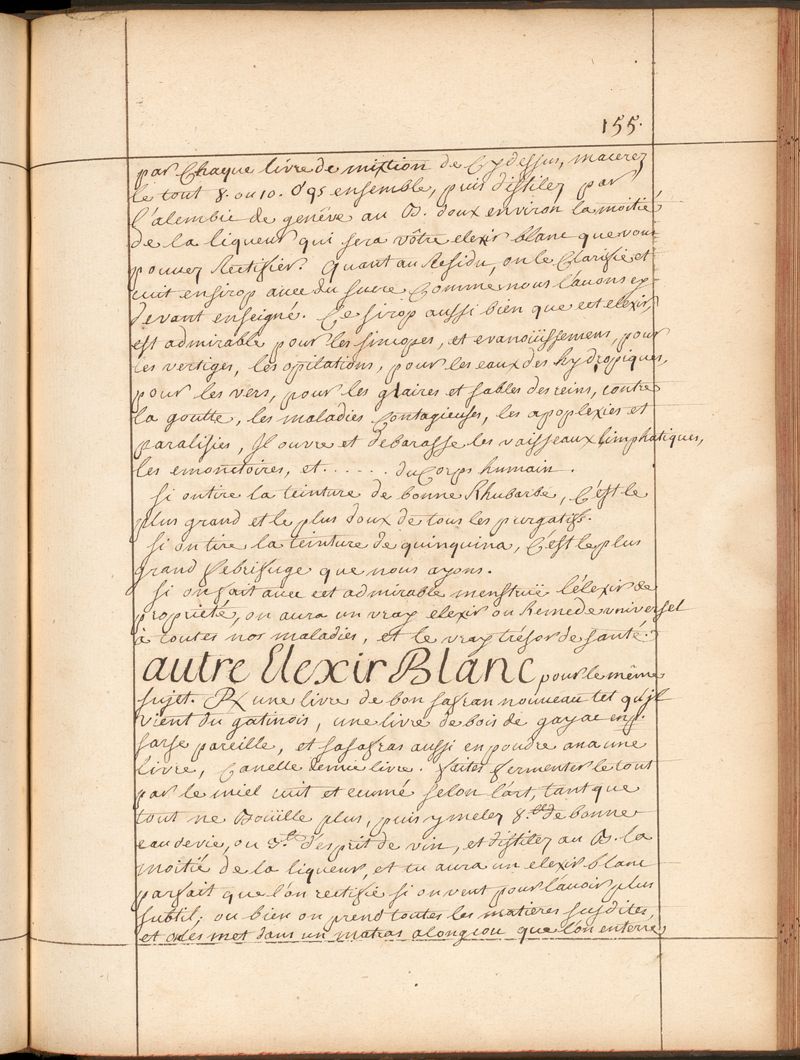 155.
par Chaque livre de mixtion de Cy dessus, macerez
le tout 8. ou 10. ensemble, puis distilez par
l'alembic de genêve au B. doux environ la moitié
de la liqueur qui sera vôtre elexir blanc que vous
pouvez Rectifier. Quant au Residu, on le Clarifie et
cuit en sirop avec du sucre Comme nous l'avons cy-
devant enseigné. Ce sirop aussi bien que cet elexir,
est admirable pour les sincopes, et evanoüissemens, pour
les vertiges, les opilations, pour les eaux des hydropiques,
pour les vers, pour les glaires et sables des reins, contre
la goutte, les maladies Contagieuses, les apoplexies et
paralisies, Il ouvre et debarasse les vaisseaux limphatiques,
les emonctoires, et . . . . . . du Corps humain.
Si on tire la teinture de bonne Rhubarbe, C'est le
plus grand et le plus doux de tous les purgatifs.
Si on tire la teinture de quinquina, C'est le plus
grand febrifuge que nous ayons.
Si on fait avec cet admirable menstruë l'élexir de
propriété, on aura un vray elexir ou Remede universel
à toutes nos maladies, et le vray trésor de santé.
autre Elexir Blanc pour le même
sujet. ℞ une livre de bon safran nouveau tel qu'il
vient du gatinois, une livre de bois de gayac en p.
sarse pareille, et sasafras aussi en poudre ana une
livre, Canelle demie livre. faites fermenter le tout
par le miel cuit et ecumé selon l'art, tant que
tout ne Boüille plus, puis y melez 8. de bonne
eau de vie, ou d'esprit de vin, et distilez au B. la
moitié de la liqueur, et tu aura un elexir blanc
parfait que l'on rectifie si on veut pour l'avoir plus
subtil; ou bien on prend toutes les matieres susdites,
et on les met dans un matras a long cou que l'on enterre